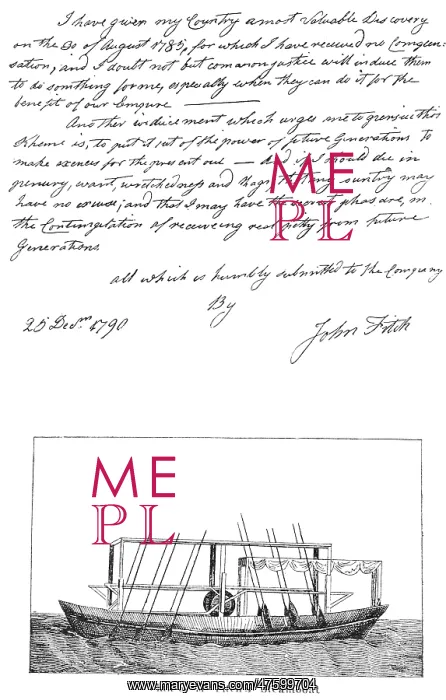 I have given my Country a most Valuable Descovery
on the 30 of August 1785, for which I have received no Compen:
sation, and I doubt not but common justice will induce them
to do something for me, especially when they can do it for the
benefit of our Empure
Another inducement which urges me to persue this
Scheme is, to put it out of the power of future Generations to
make excuses for the present one — And if I should die in
penury, want, wretchedness and rags, my country may
have no excuse; and that I may have the secret pleasure, in
the Contemplation of receiveing real pitty from future
Generations.
all which is humbly submitted to the Company
By
25 Decm 1790
John Fitch
ME
PL
ME
PL
www.maryevans.com/47599704